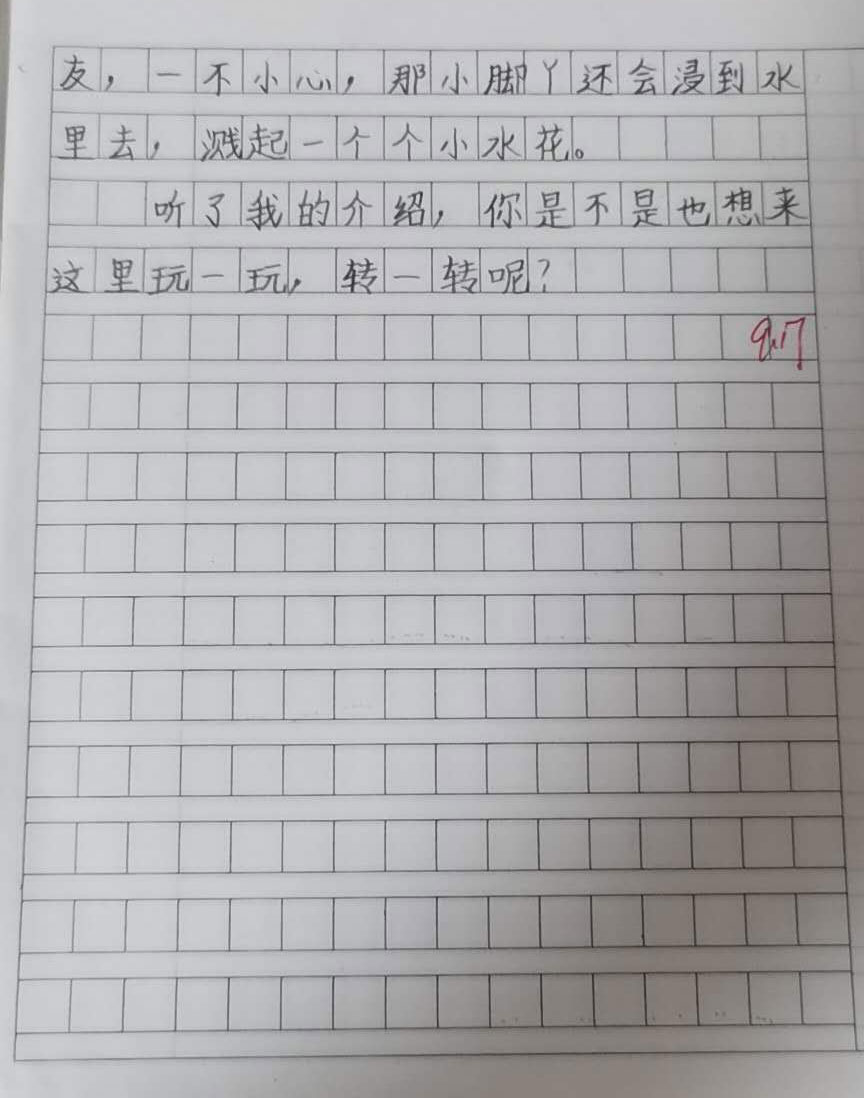 友，一不小心，那小脚丫还会浸到水
里去，溅起一个个小水花。
听了我的介绍，你是不是也想来
这里玩一玩，转一转呢？
9.17